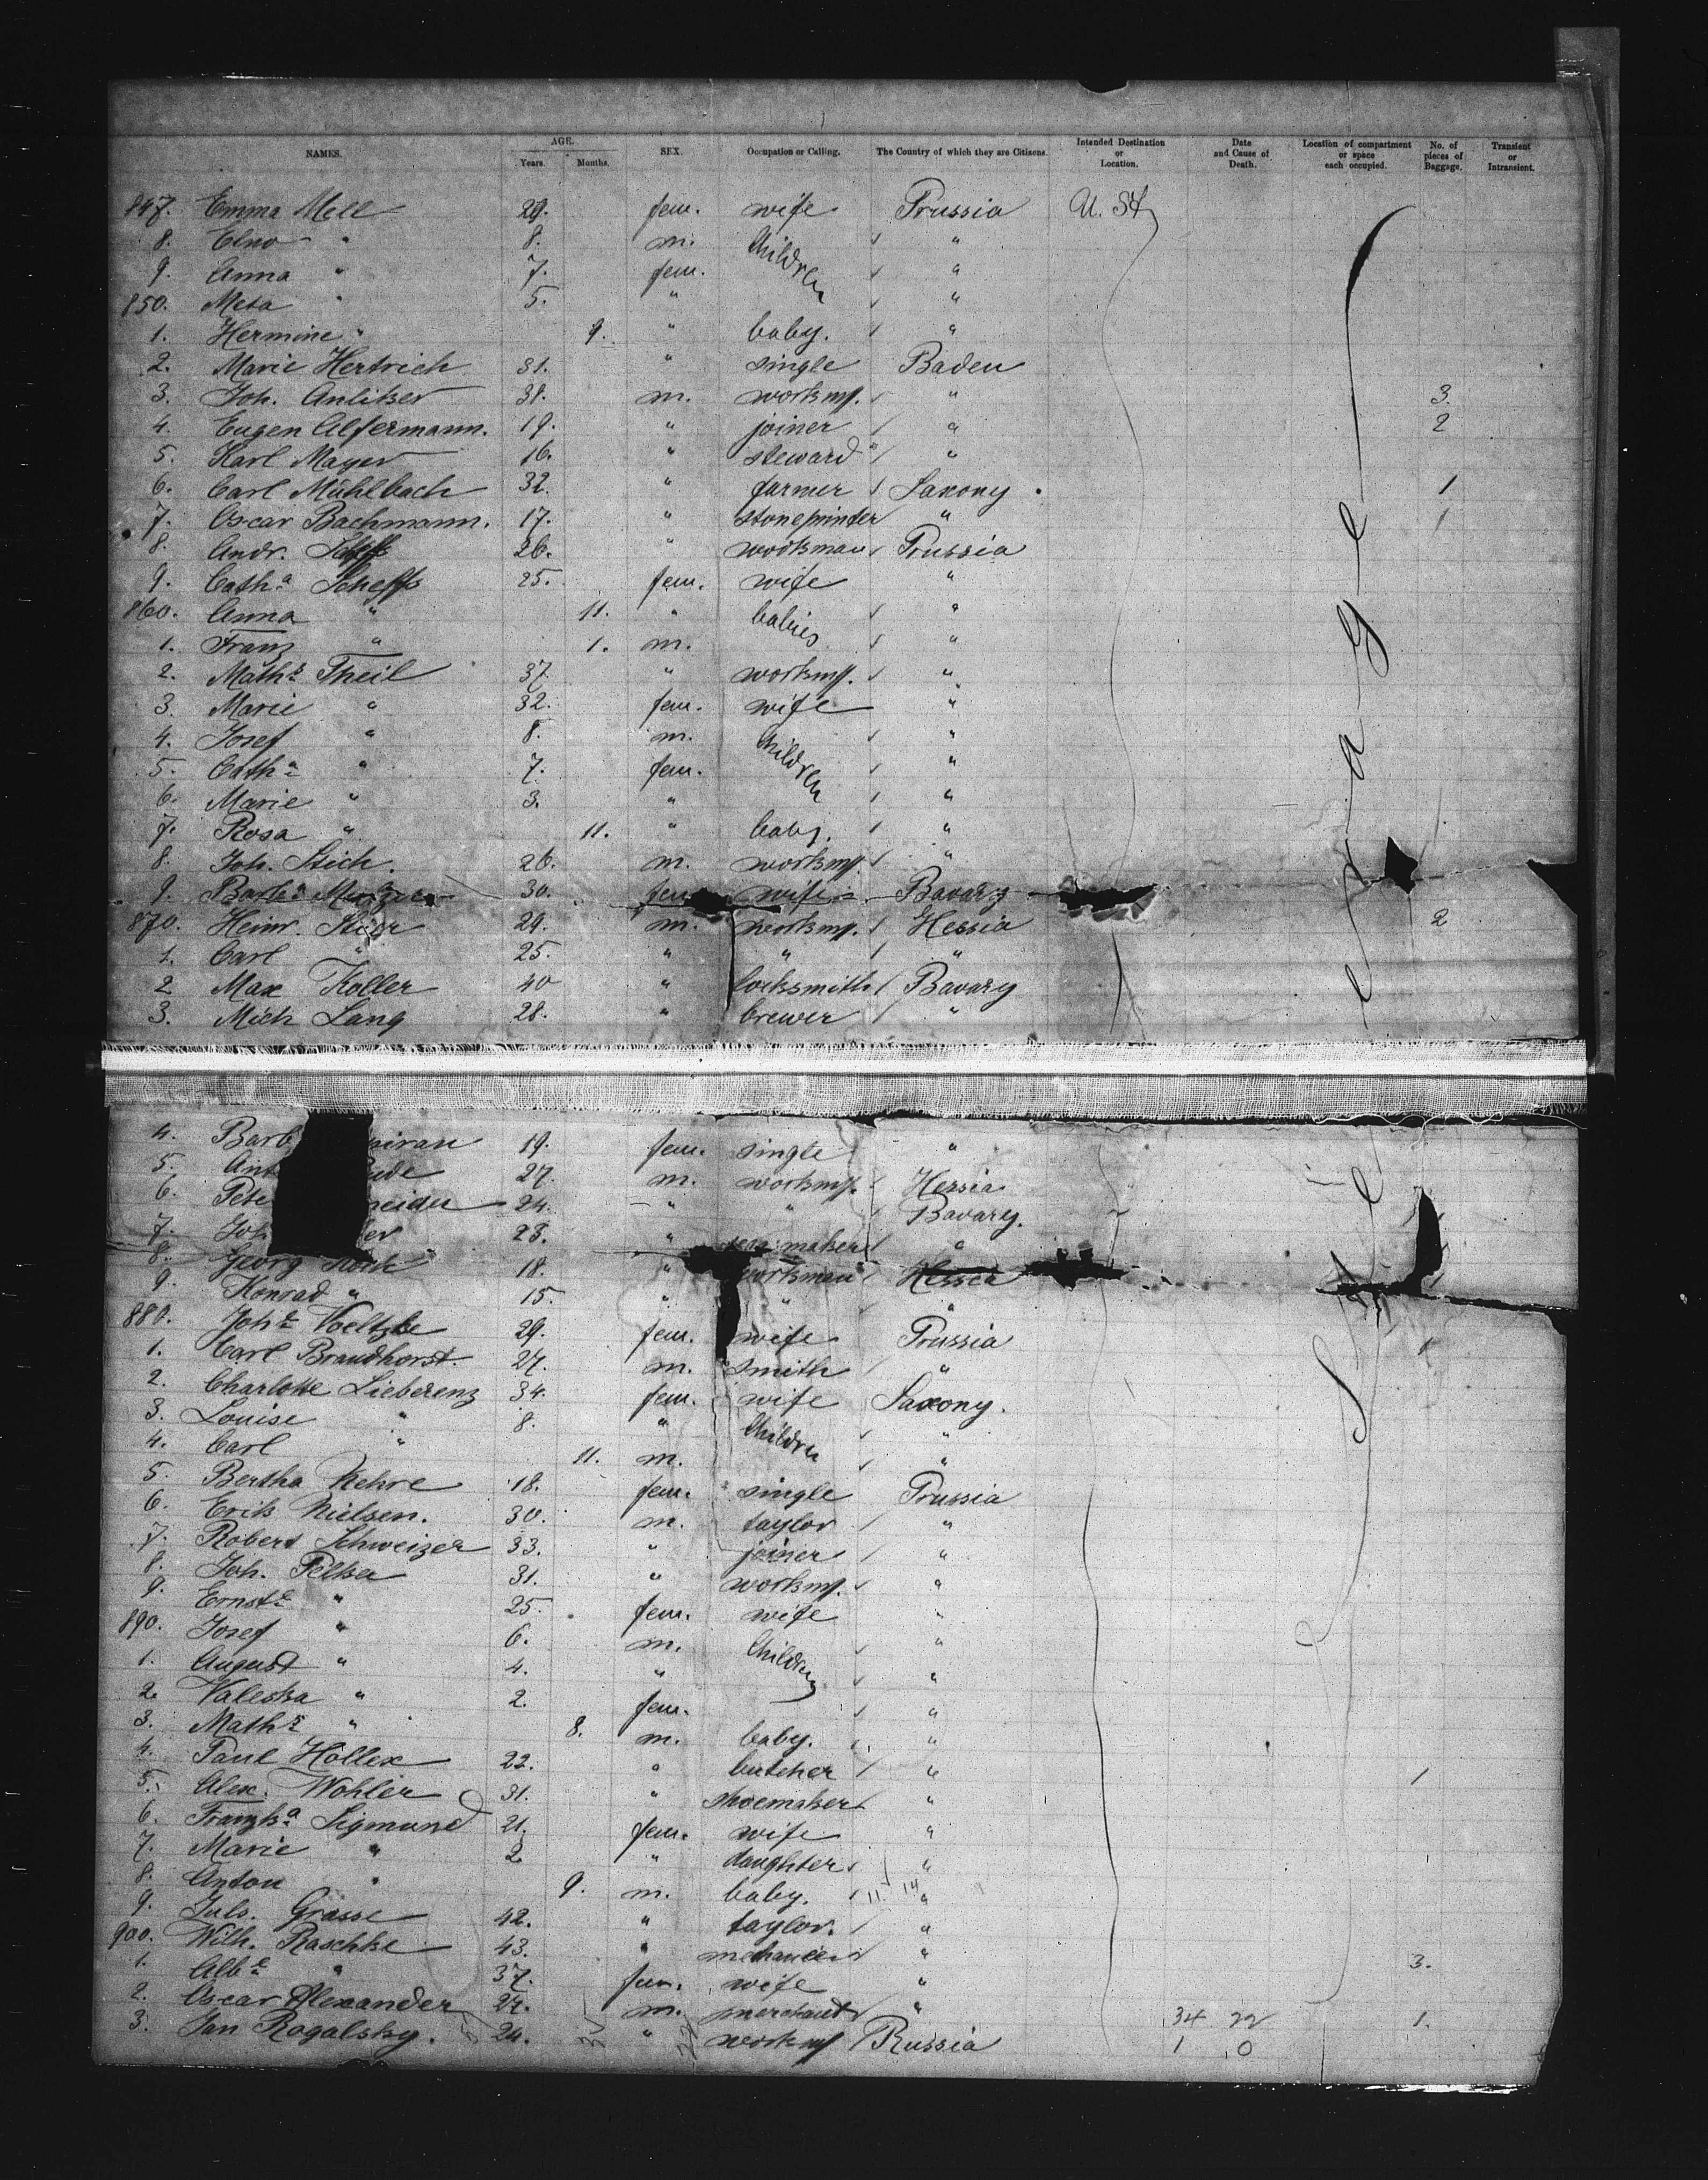 NAMES. AGE. Years. Months. SEX. Occupation or Calling. The Country of which they are Citizens. Intended Destination or Location. Date and Cause of Death. Location of compartment or space each occupied. No. of pieces of Baggage. Transient or Intransient.
847. Emma Mell 29. fem. wife Prussia U. St
8. " 8. m. Children "
9. Anna " 7. fem. "
850. Meta " 5. " "
1. Hermine " 9. " baby. "
2. Marie Hertrich 31. " single Baden
3. Joh. Anlitzer 38. m. workmn. " 3.
4. Eugen Alfermann. 19. " joiner " 2
5. Karl Mayer 16. " steward "
6. Carl Mühlbach 32. " farmer Saxony 1
7. Oscar Bachmann. 17. " stoneprinter " 1
8. Andr. 26. " workman Prussia
9. Cath.a Scheffs 25. fem. wife "
860. Anna " 11. " babies "
1. Franz " 1. m. "
2. Maths Theil 37. " workmn. "
3. Marie " 32. fem. wife "
4. Josef " 8. m. Children "
5. Cath.a " 7. fem. "
6. Marie " 3. " "
7. Rosa " 11. " baby. "
8. Joh. Stich. 26. m. workmn. "
9. Barb.a 30. fem wife Bavary
870. Heinr. 29. m. workmn. Hessia 2
1. Carl " 25. " " "
2 Max Koller 40 " locksmith Bavary
3. Mich Lang 28. " brewer "
4. Barb 19. fem. single "
5. Ant 27. m. workmn. Hessia
6. Pete neider 24. " " Bavary.
7. Joh er 23. " maker "
8. Georg Koch 18. " workman Hessia
9. Konrad " 15. " " "
880. Joh.e Voeltzke 29. fem. wife Prussia 1
1. Carl Brandhorst. 27. m. smith "
2. Charlotte Lieberenz 34. fem. wife Saxony.
3. Louise " 8. " Children "
4. Carl " 11. m. "
5. Bertha Nehre 18. fem. single Prussia
6. Erik Nielsen. 30. m. taylor "
7. Robert Schweizer 33. " joiner "
8. Joh. Pelka 31. " workmn. "
9. Ernst.e " 25. fem. wife "
890. Josef " 6. m. Children "
1. August " 4. " "
2. Valeska " 2. fem. "
3. Maths " 8. m. baby. "
4. Paul Hollex 22. " butcher " 1
5. Alex. Wohler 31. " shoemaker "
6. Franzka Sigmund 21. fem. wife "
7. Marie " 2. " daughter "
8. Anton " 9. m. baby. 11. 14 "
9. Juls. Grasse 42. " taylor. "
900. Wilh. Raschke 43. " " 3.
1. Alb.e " 37. fem. wife "
2. Oscar Alexander 27. m. merchant " 34 22 1.
3. Jan Rogalsky. 24. " workmn Russia 1 0